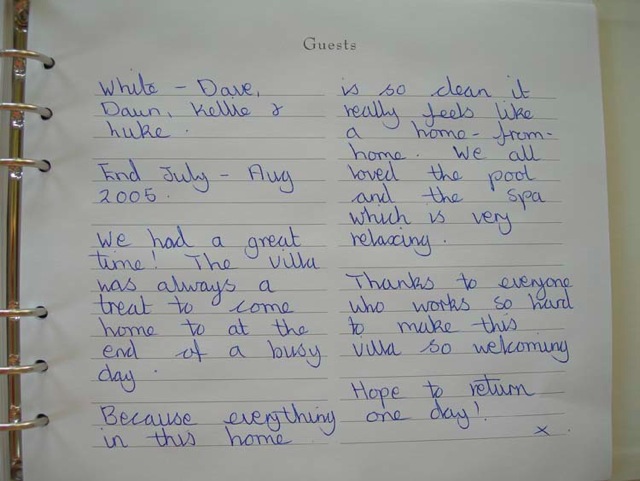 Guests
White - Dave,
Dawn, Kellie &
Luke.
End July - Aug
2005.
We had a great
time! The villa
was always a
treat to come
home to at the
end of a busy
day.
Because everything
in this home
is so clean it
really feels like
a home-from-
home. We all
loved the pool
and the spa
which is very
relaxing.
Thanks to everyone
who works so hard
to make this
villa so welcoming
Hope to return
one day!
x.